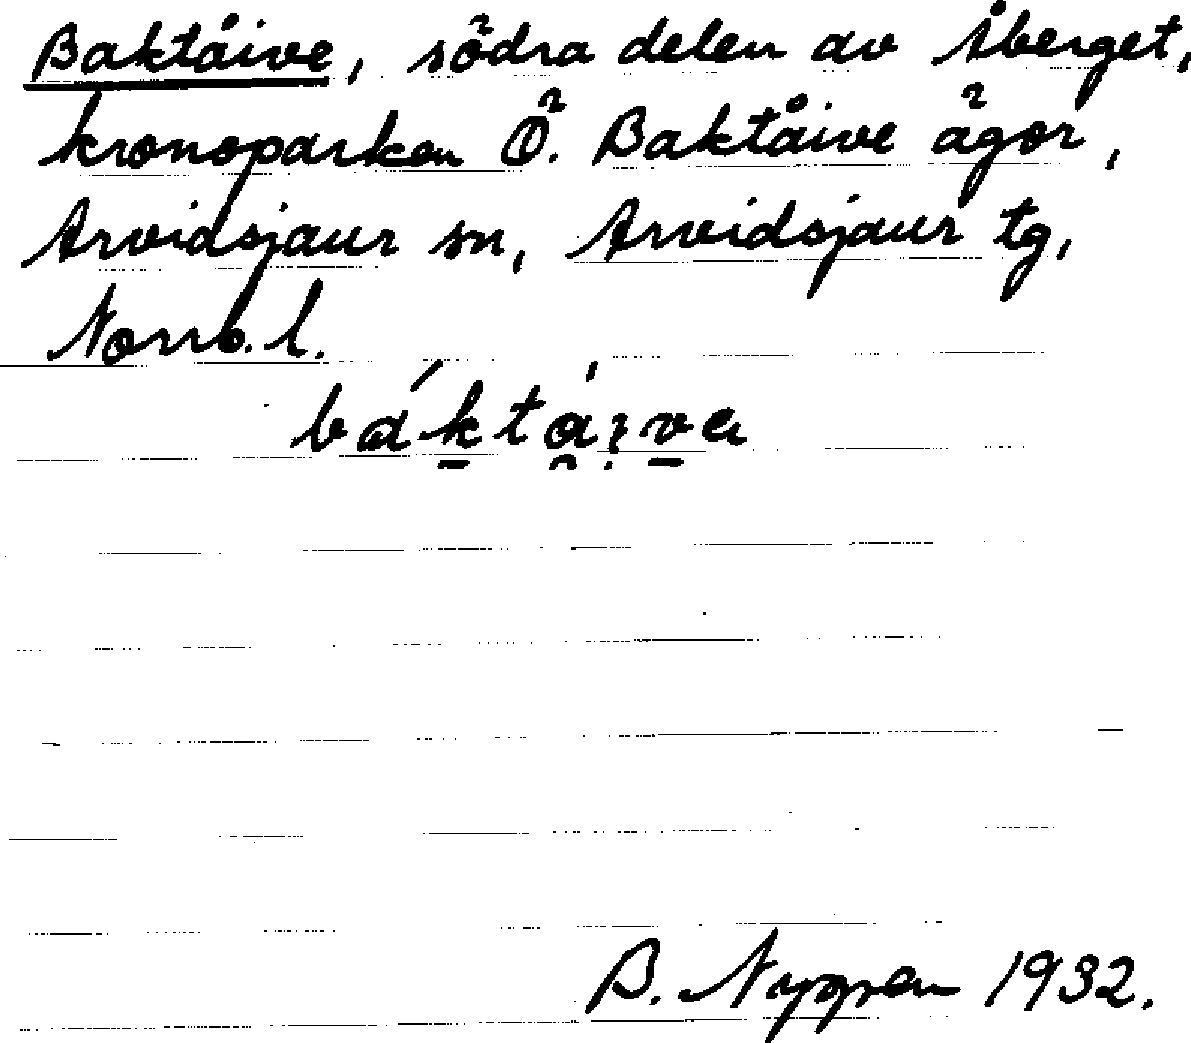 Baktåive, södra delen av Åberget,
kronoparken Ö. Baktåive ägor,
Arvidsjaur sn, Arvidsjaur tg,
Norrb. l.
B. Nygren 1932.